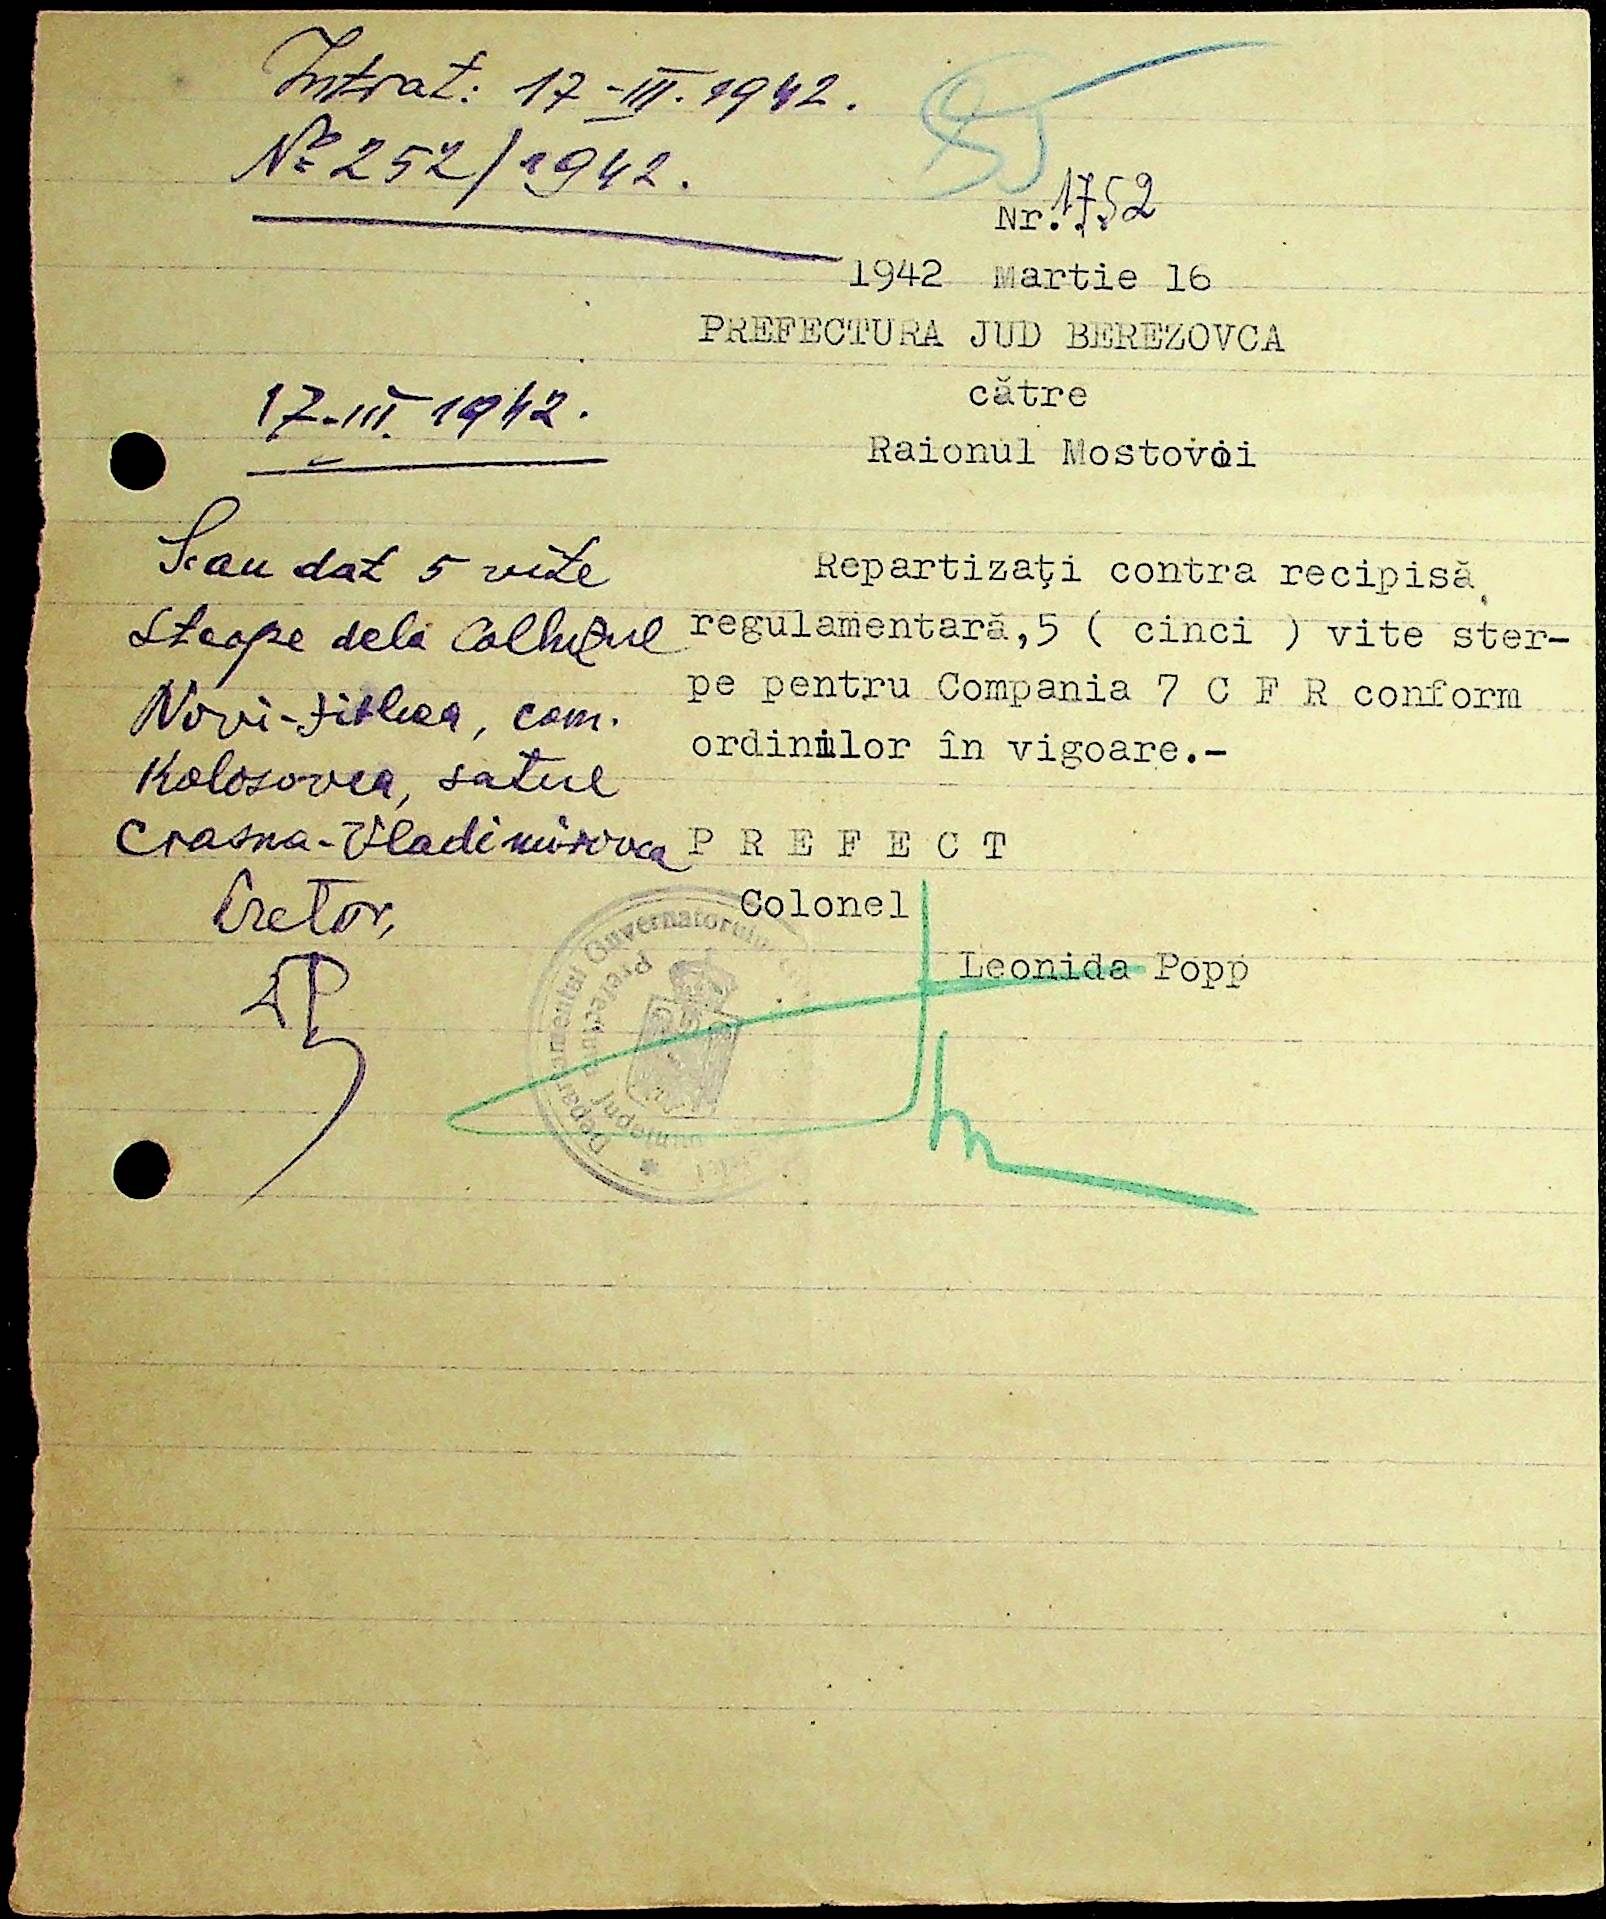 Intrat: 17-III.1942.
№ 252/1942.
Nr. 1752
1942 Martie 16
PREFECTURA JUD BEREZOVCA
către
Raionul Mostovoi
17-III.1942.
S-au dat 5 vite
sterpe dela Colhozul
Novi-, com.
Kolosovca, satul
Crasna-Vladimirovca
Pretor,
Repartizați contra recipisă
regulamentară,5 ( cinci ) vite ster-
pe pentru Compania 7 C F R conform
ordinilor în vigoare.-
P R E F E C T
Colonel
Leonida Popp
Guvernatorului
Prefectura Județului